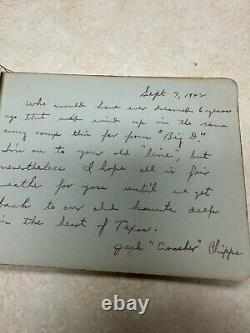 Sept 7, 1942
Who would have ever dreamed 6 years
ago that we'd wind up in the same
army camp this far from "Big D."
I'm on to your old "line", but
nevertheless I hope all is fair
weather for you until we get
back to our old haunts deep
in the heart of Texas.
Jack "Crusher" Phipps